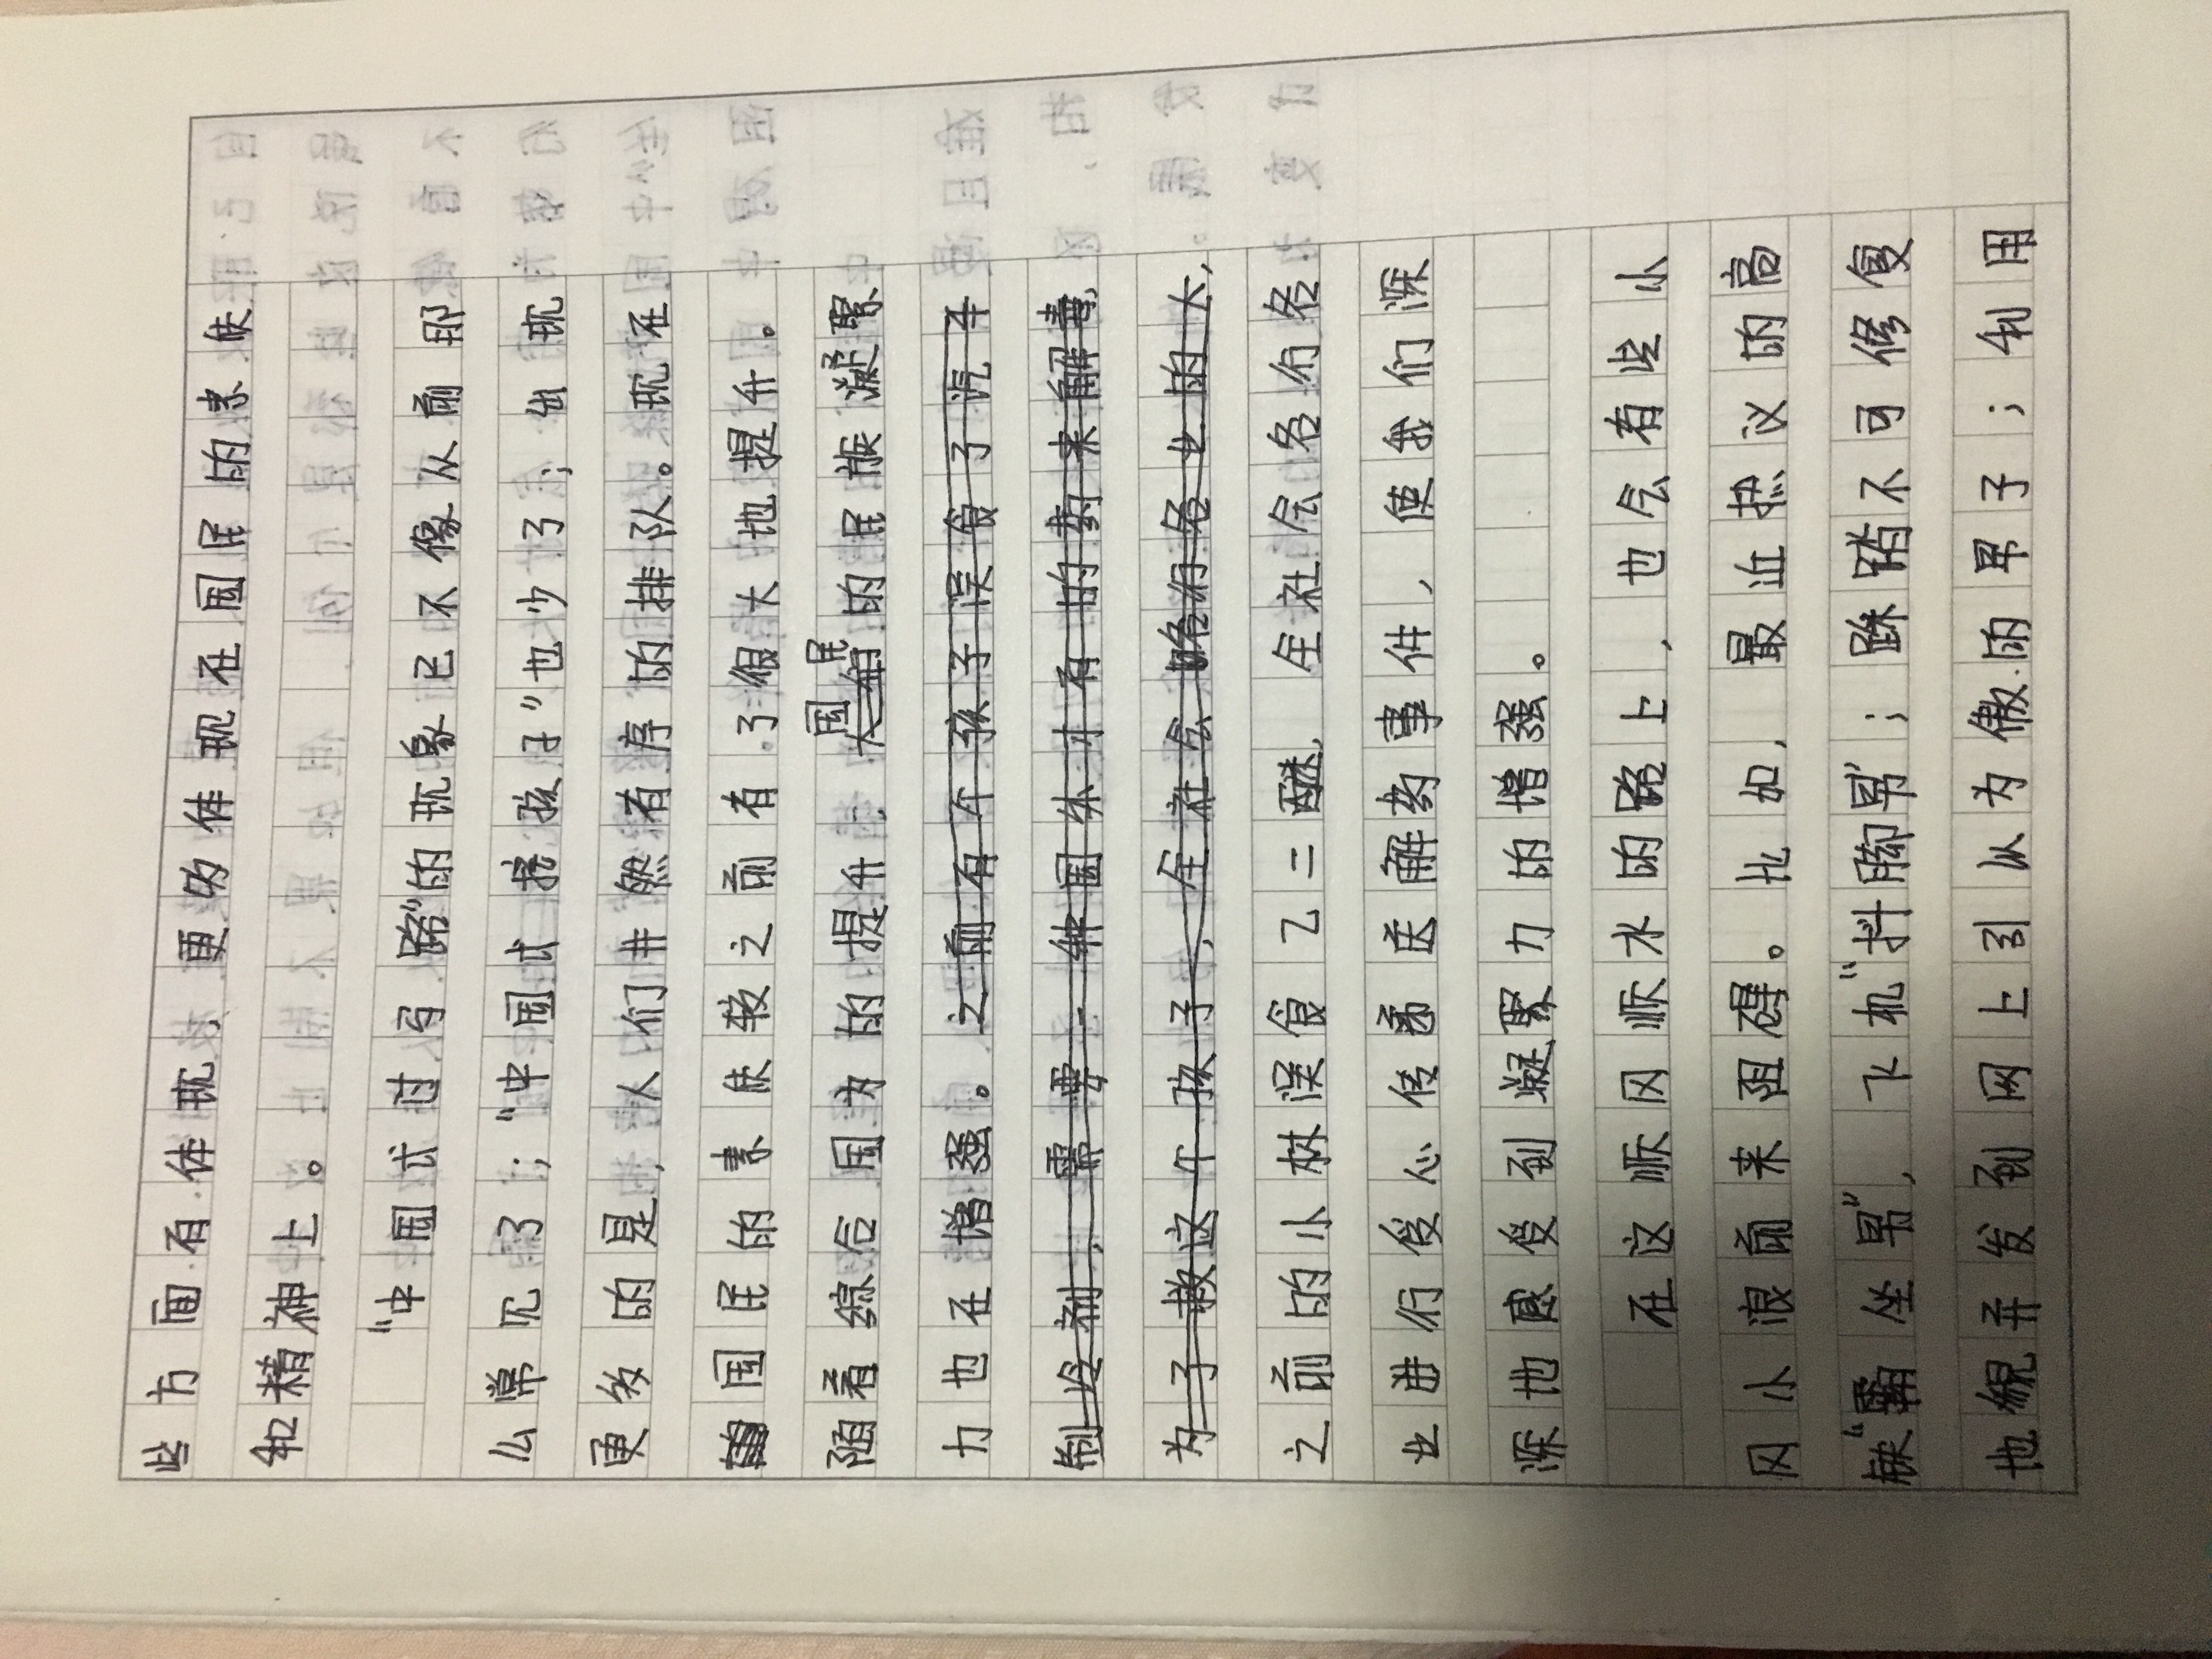 些方面有体现,更多体现在国民的素质
和精神上。
“中国式过马路”的现象已不像从前那
么常见了;“中国式接孩子”也少了;出现
更多的是,人们井然有序的排队。现在
国民的素质较之前有了很大地提升。
随着综合国力的提升,国民的民族凝聚
力也在增强。之前有个孩子误食了汽车
制发剂,需要一种国外才有的药来解毒,
为了救这个孩子,全社会
之前的小林误食乙二醚,全社会各行各
业进行爱心传递送解药事件,使我们深
深地感受到凝聚力的增强。
在这顺风顺水的路上,也会有些小
风小浪前来阻碍。比如,最近热议的高
铁“霸坐男”,飞机“抖脚男”;踩踏不可修复
地貌并发到网上引以为傲的男子;利用